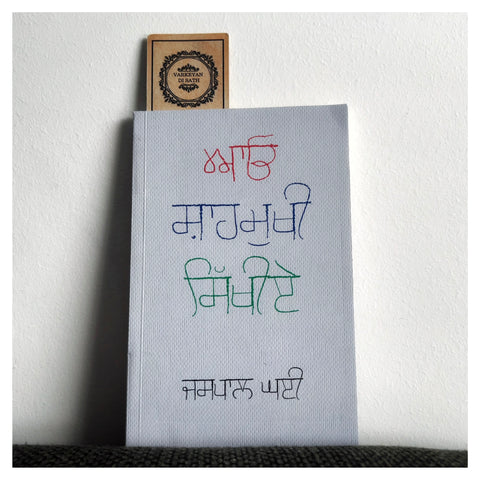 VARKEYAN
DI RATH
ਆਓ
ਸ਼ਾਹਮੁਖੀ
ਸਿੱਖੀਏ
ਜਸਪਾਲ ਘਈ